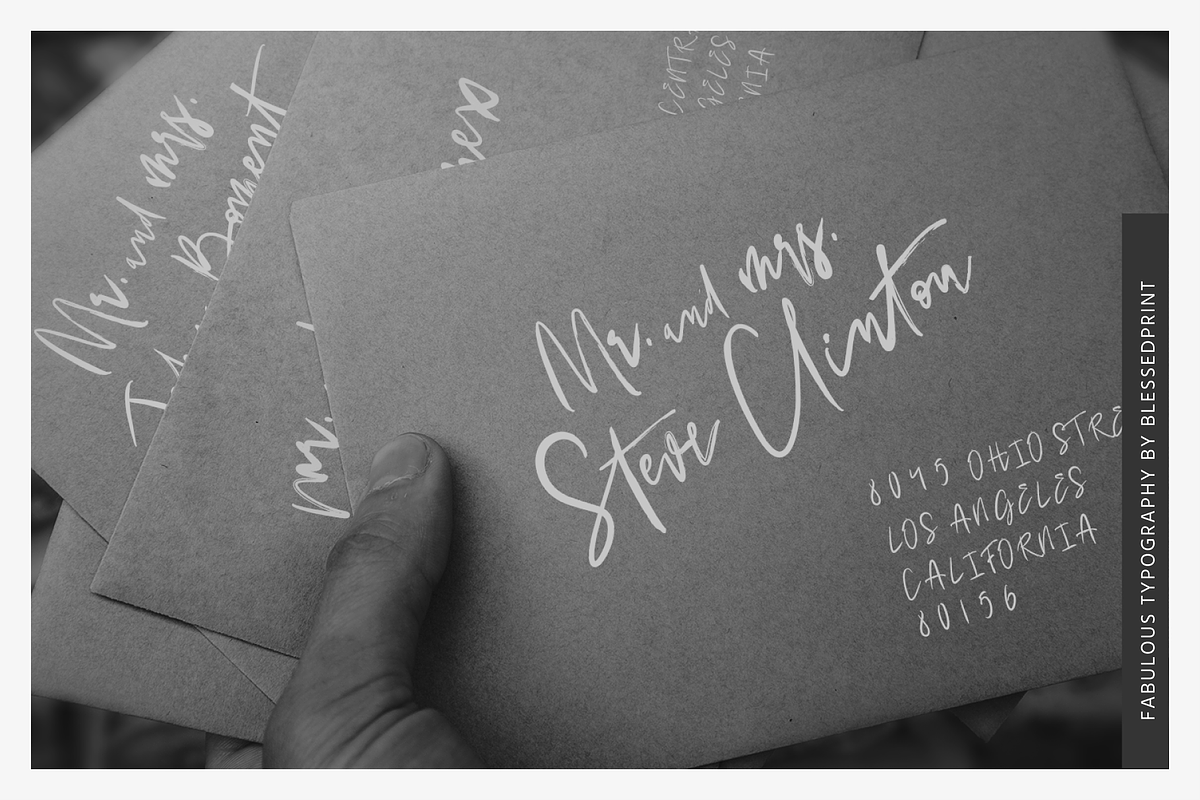 Mr. and mrs.
Boment
mr.
Mr. and mrs.
Steve Clinton
8045 OHIO STRE
LOS ANGELES
CALIFORNIA
80156
FABULOUS TYPOGRAPHY BY BLESSEDPRINT